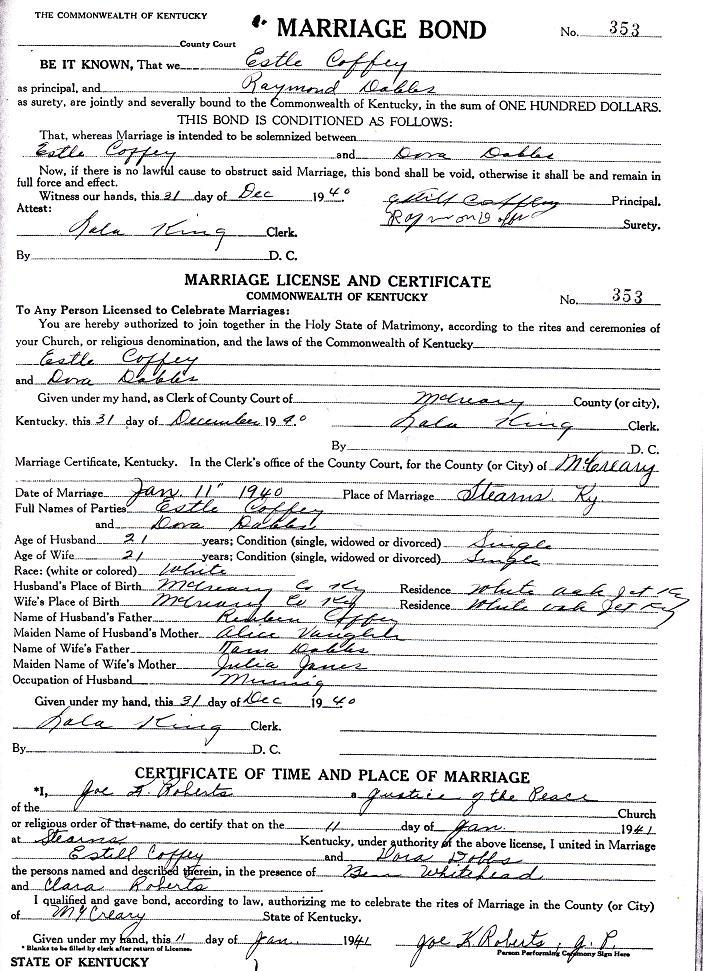 THE COMMONWEALTH OF KENTUCKY
MARRIAGE BOND
No. 353
County Court
BE IT KNOWN, That we Estle Coffey
as principal, and Raymond Dobbs
as surety, are jointly and severally bound to the Commonwealth of Kentucky, in the sum of ONE HUNDRED DOLLARS.
THIS BOND IS CONDITIONED AS FOLLOWS:
That, whereas Marriage is intended to be solemnized between
Estle Coffey and Dora Dobbs
Now, if there is no lawful cause to obstruct said Marriage, this bond shall be void, otherwise it shall be and remain in
full force and effect.
Witness our hands, this 31 day of Dec 1940 Coffey Principal.
Attest: Surety.
Lala King Clerk.
By D. C.
MARRIAGE LICENSE AND CERTIFICATE
COMMONWEALTH OF KENTUCKY
No. 353
To Any Person Licensed to Celebrate Marriages:
You are hereby authorized to join together in the Holy State of Matrimony, according to the rites and ceremonies of
your Church, or religious denomination, and the laws of the Commonwealth of Kentucky
Estle Coffey
and Dora Dobbs
Given under my hand, as Clerk of County Court of McCreary County (or city),
Kentucky, this 31 day of December 1940 Lala King Clerk.
By D. C.
Marriage Certificate, Kentucky. In the Clerk's office of the County Court, for the County (or City) of McCreary
Date of Marriage Jan. 11" 1940 Place of Marriage Stearns Ky.
Full Names of Parties Estle Coffey
and Dora Dobbs
Age of Husband 21 years; Condition (single, widowed or divorced) Single
Age of Wife 21 years; Condition (single, widowed or divorced) Single
Race: (white or colored) White
Husband's Place of Birth McCreary Co Ky Residence White oak Jct Ky
Wife's Place of Birth McCreary Co Ky Residence White oak Jct Ky
Name of Husband's Father Reuben Coffey
Maiden Name of Husband's Mother Alice Vaughn
Name of Wife's Father Dobbs
Maiden Name of Wife's Mother Julia Jones
Occupation of Husband Mining
Given under my hand, this 31 day of Dec 1940
Lala King Clerk.
By D. C.
CERTIFICATE OF TIME AND PLACE OF MARRIAGE
*I, Joe K. Roberts a Justice of the Peace
of the Church
or religious order of that name, do certify that on the 11 day of Jan. 1941
at Stearns Kentucky, under authority of the above license, I united in Marriage
Estill Coffey and Dora Dobbs
the persons named and described therein, in the presence of Ben Whitehead
and Clara Roberts
I qualified and gave bond, according to law, authorizing me to celebrate the rites of Marriage in the County (or City)
of McCreary State of Kentucky.
Given under my hand, this 11 day of Jan. 1941 Joe K Roberts, J. P.
* Blanks to be filled by clerk after return of License. Person Performing Ceremony Sign Here
STATE OF KENTUCKY